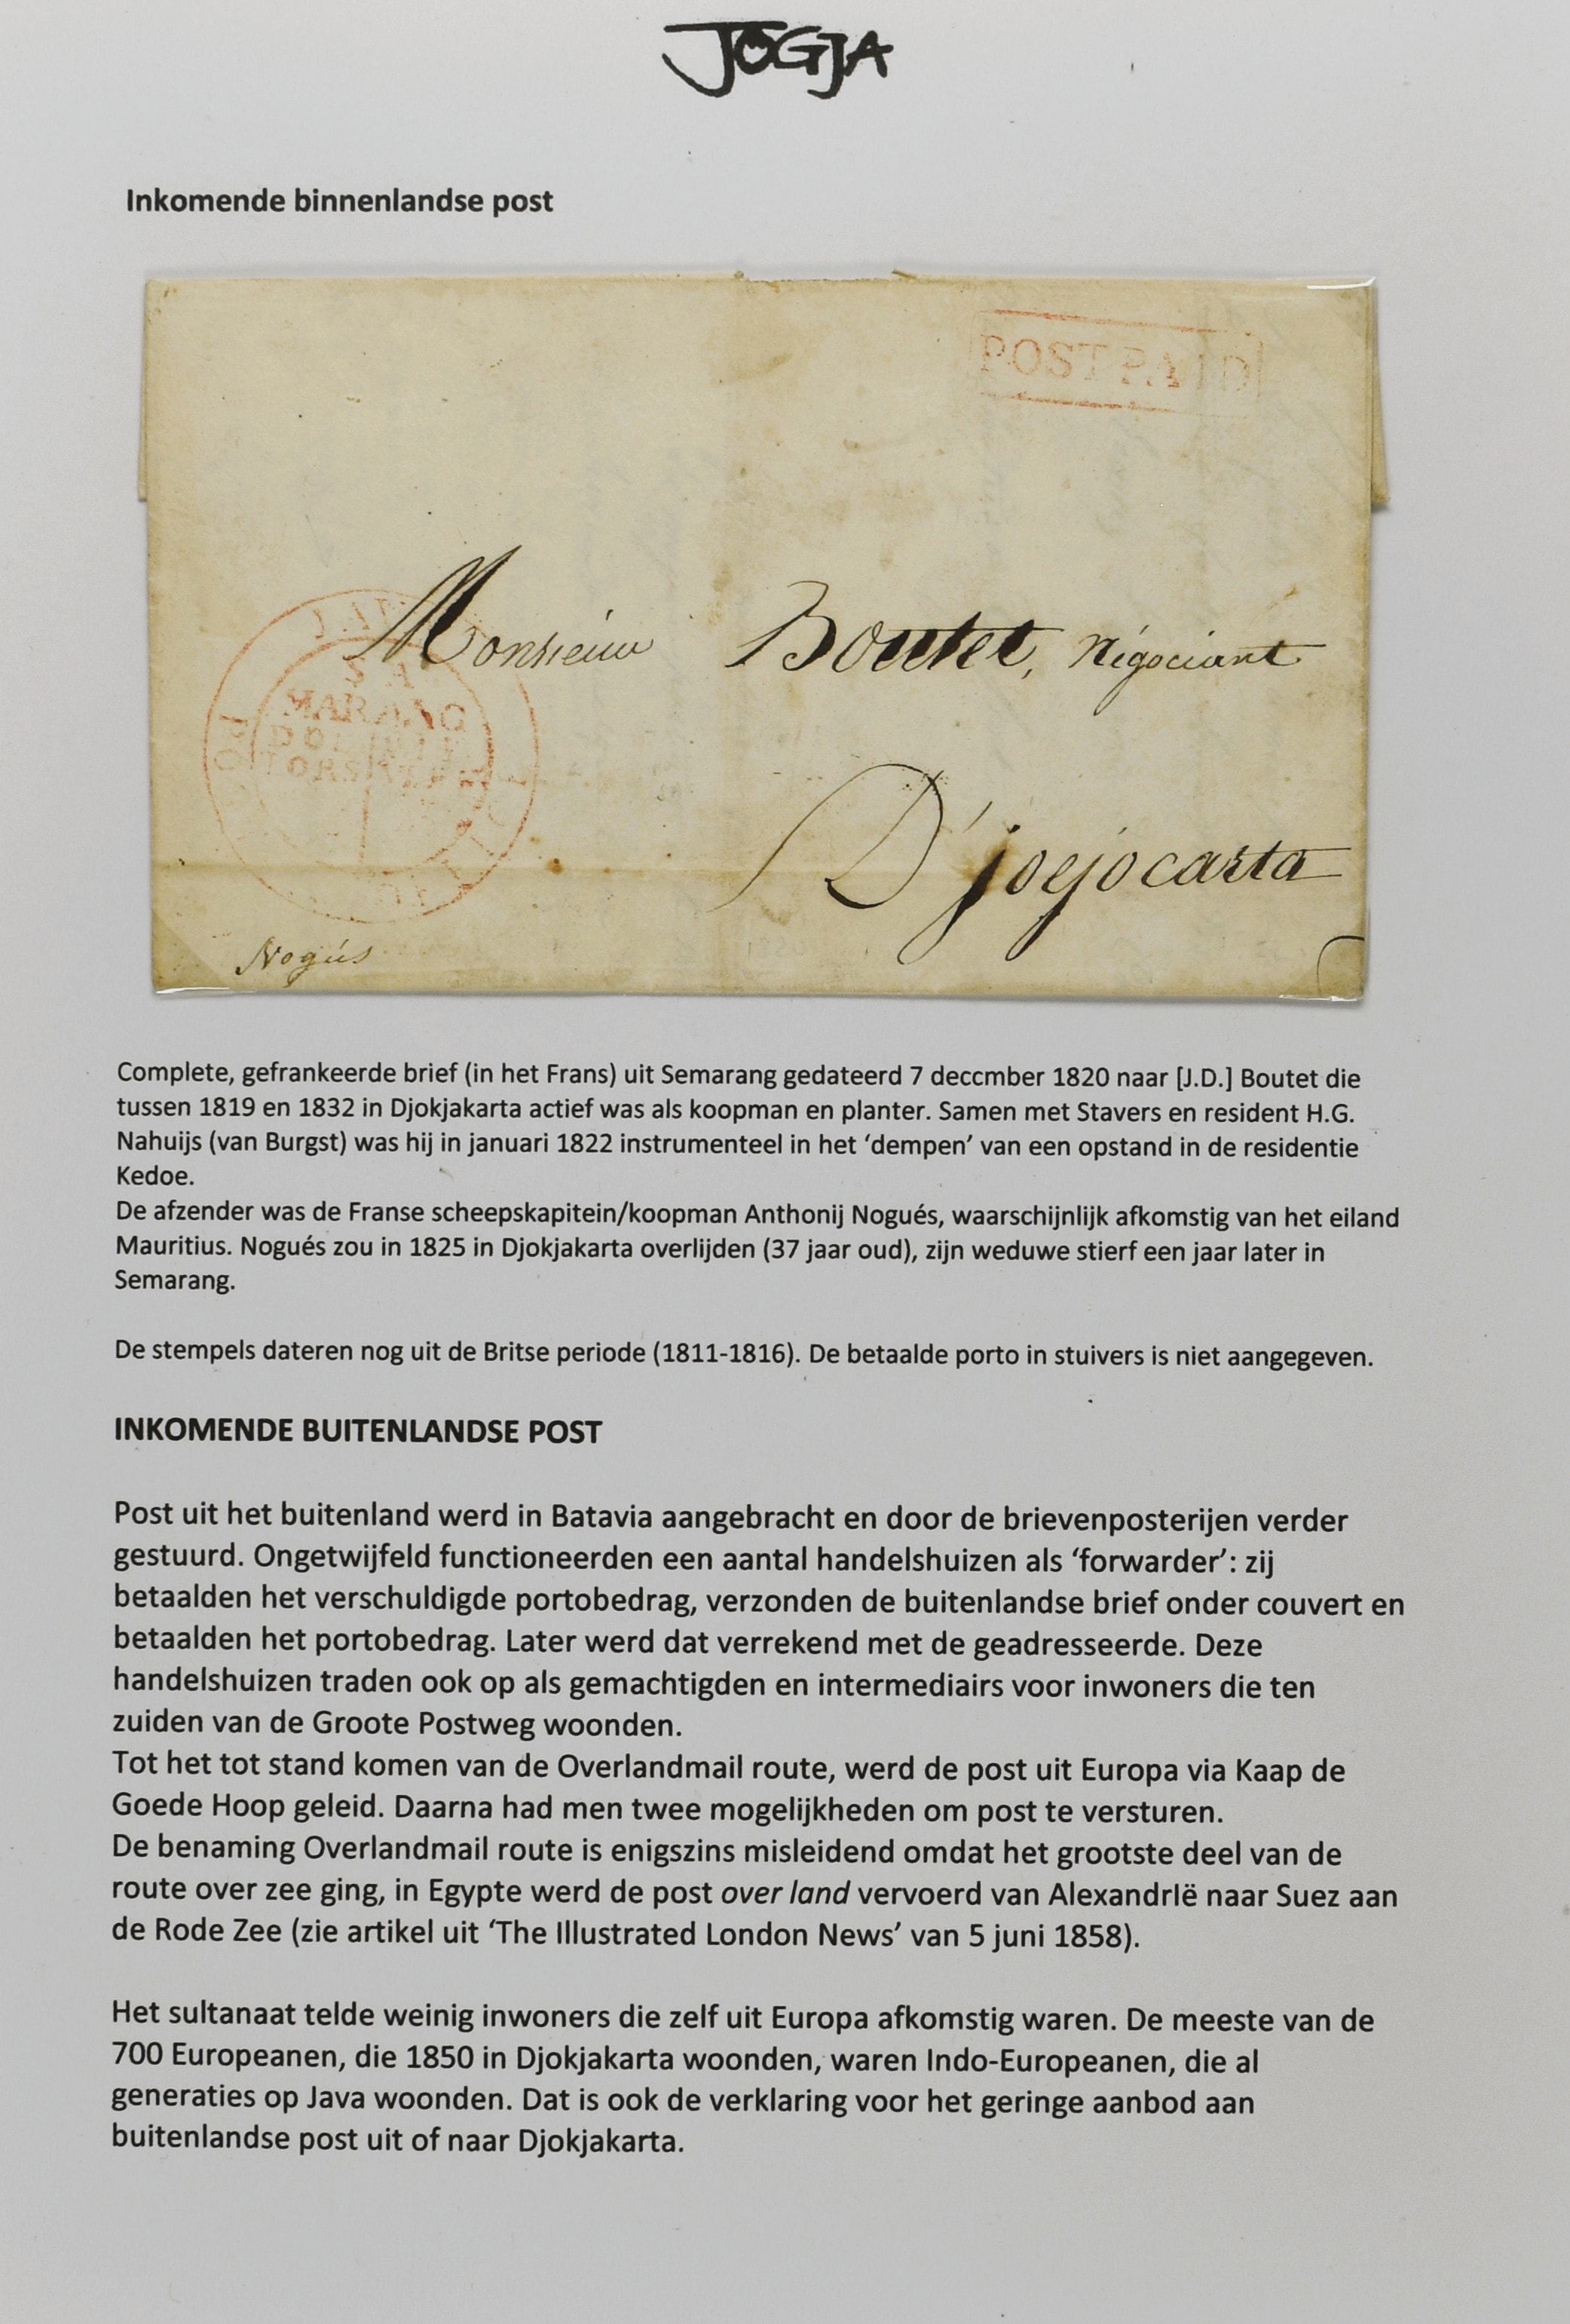 JOGJA
Inkomende binnenlandse post
POST PAID
Monsieur Boutet, négociant
D'joejocarta
Nogués
Complete, gefrankeerde brief (in het Frans) uit Semarang gedateerd 7 deccmber 1820 naar [J.D.] Boutet die
tussen 1819 en 1832 in Djokjakarta actief was als koopman en planter. Samen met Stavers en resident H.G.
Nahuijs (van Burgst) was hij in januari 1822 instrumenteel in het ‘dempen’ van een opstand in de residentie
Kedoe.
De afzender was de Franse scheepskapitein/koopman Anthonij Nogués, waarschijnlijk afkomstig van het eiland
Mauritius. Nogués zou in 1825 in Djokjakarta overlijden (37 jaar oud), zijn weduwe stierf een jaar later in
Semarang.
De stempels dateren nog uit de Britse periode (1811-1816). De betaalde porto in stuivers is niet aangegeven.
INKOMENDE BUITENLANDSE POST
Post uit het buitenland werd in Batavia aangebracht en door de brievenposterijen verder
gestuurd. Ongetwijfeld functioneerden een aantal handelshuizen als ‘forwarder’: zij
betaalden het verschuldigde portobedrag, verzonden de buitenlandse brief onder couvert en
betaalden het portobedrag. Later werd dat verrekend met de geadresseerde. Deze
handelshuizen traden ook op als gemachtigden en intermediairs voor inwoners die ten
zuiden van de Groote Postweg woonden.
Tot het tot stand komen van de Overlandmail route, werd de post uit Europa via Kaap de
Goede Hoop geleid. Daarna had men twee mogelijkheden om post te versturen.
De benaming Overlandmail route is enigszins misleidend omdat het grootste deel van de
route over zee ging, in Egypte werd de post over land vervoerd van AlexandrIë naar Suez aan
de Rode Zee (zie artikel uit ‘The Illustrated London News’ van 5 juni 1858).
Het sultanaat telde weinig inwoners die zelf uit Europa afkomstig waren. De meeste van de
700 Europeanen, die 1850 in Djokjakarta woonden, waren Indo-Europeanen, die al
generaties op Java woonden. Dat is ook de verklaring voor het geringe aanbod aan
buitenlandse post uit of naar Djokjakarta.